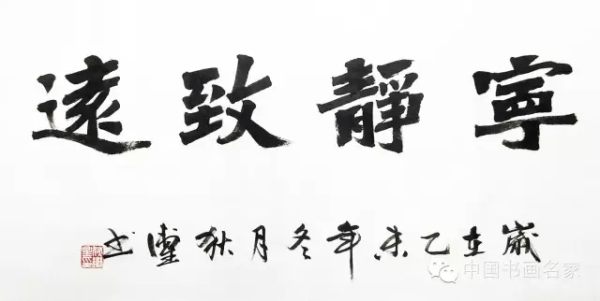 寧靜致遠
歲在乙未年冬月狄书
中国书画名家